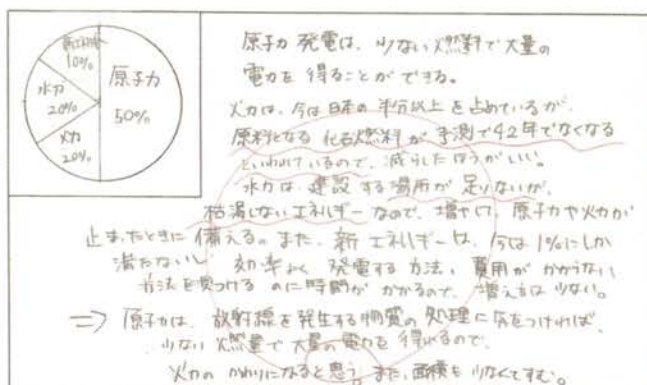 新エネルギー
10%
水力
20%
火力
20%
原子力
50%
原子力発電は、少ない燃料で大量の
電力を得ることができる。
火力は、今は日本の半分以上を占めているが、
原料となる化石燃料が予測で42年でなくなる
といわれているので、減らしたほうがいい。
水力は、建設する場所が足りないが、
枯渇しないエネルギーなので、増やして、原子力や火力が
止まったときに備える。また、新エネルギーは、今は1%にしか
満たないし、効率よく発電する方法、費用がかからない
方法を見つけるのに時間がかかるので、増え方は少ない。
⇒ 原子力は、放射線を発生する物質の処理に気をつければ、
少ない燃量で大量の電力を得れるので、
火力のかわりになると思う。また、面積も少なくてすむ。